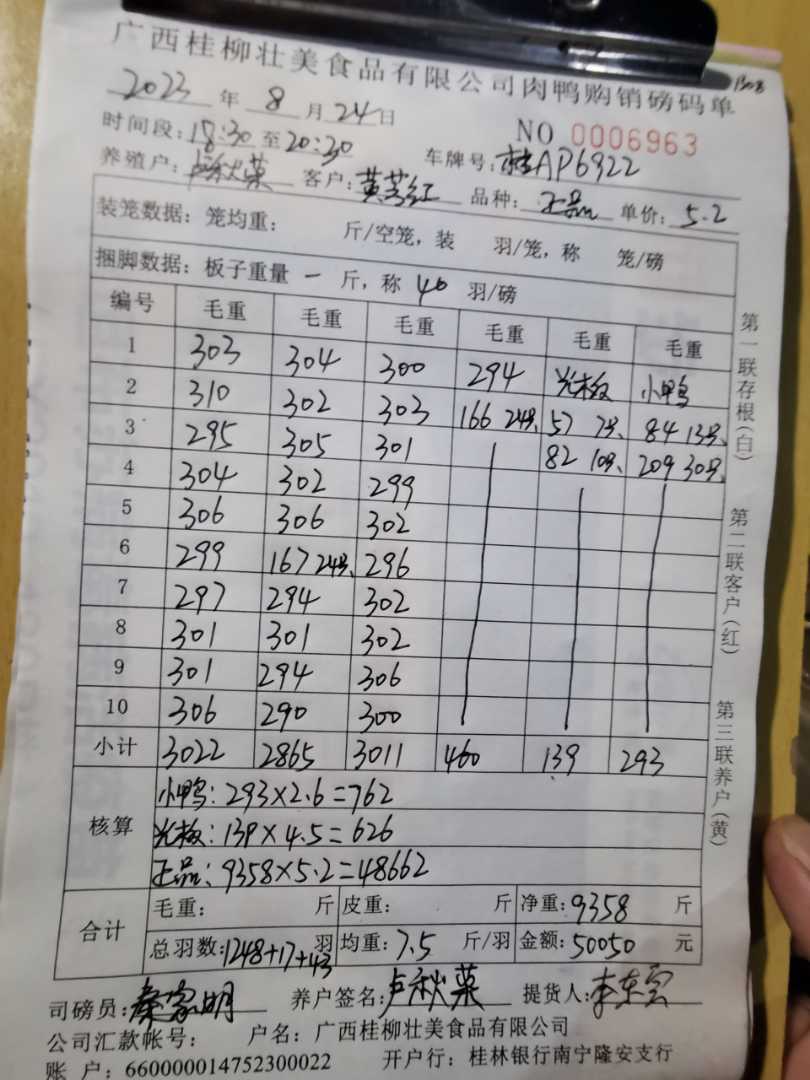 1308
广西桂柳壮美食品有限公司肉鸭购销磅码单
2023 年 8 月 24 日
NO 0006963
时间段: 18:30 至 20:30
车牌号: 桂AP6922
养殖户: 卢秋菜 客户: 品种: 正品 单价: 5.2
装笼数据: 笼均重: 斤/空笼, 装 羽/笼, 称 笼/磅
捆脚数据: 板子重量 一 斤, 称 40 羽/磅
编号 毛重 毛重 毛重 毛重 毛重 毛重
1 303 304 300 294 光板 小鸭
2 310 302 303 166 24只 57 7只 84 13只
3 295 305 301 82 10只 209 30只
4 304 302 299
5 306 306 302
6 299 167 24只 296
7 297 294 302
8 301 301 302
9 301 294 306
10 306 290 300
小计 3022 2865 3011 460 139 293
核算
小鸭: 293×2.6=762
光板: 139×4.5=626
正品: 9358×5.2=48662
合计
毛重: 斤 皮重: 斤 净重: 9358 斤
总羽数: 1248+17+43 羽 均重: 7.5 斤/羽 金额: 50050 元
司磅员: 秦家明 养户签名: 卢秋菜 提货人:
公司汇款帐号: 户名: 广西桂柳壮美食品有限公司
账 户: 660000014752300022 开户行: 桂林银行南宁隆安支行
第一联存根(白)
第二联客户(红)
第三联养户(黄)